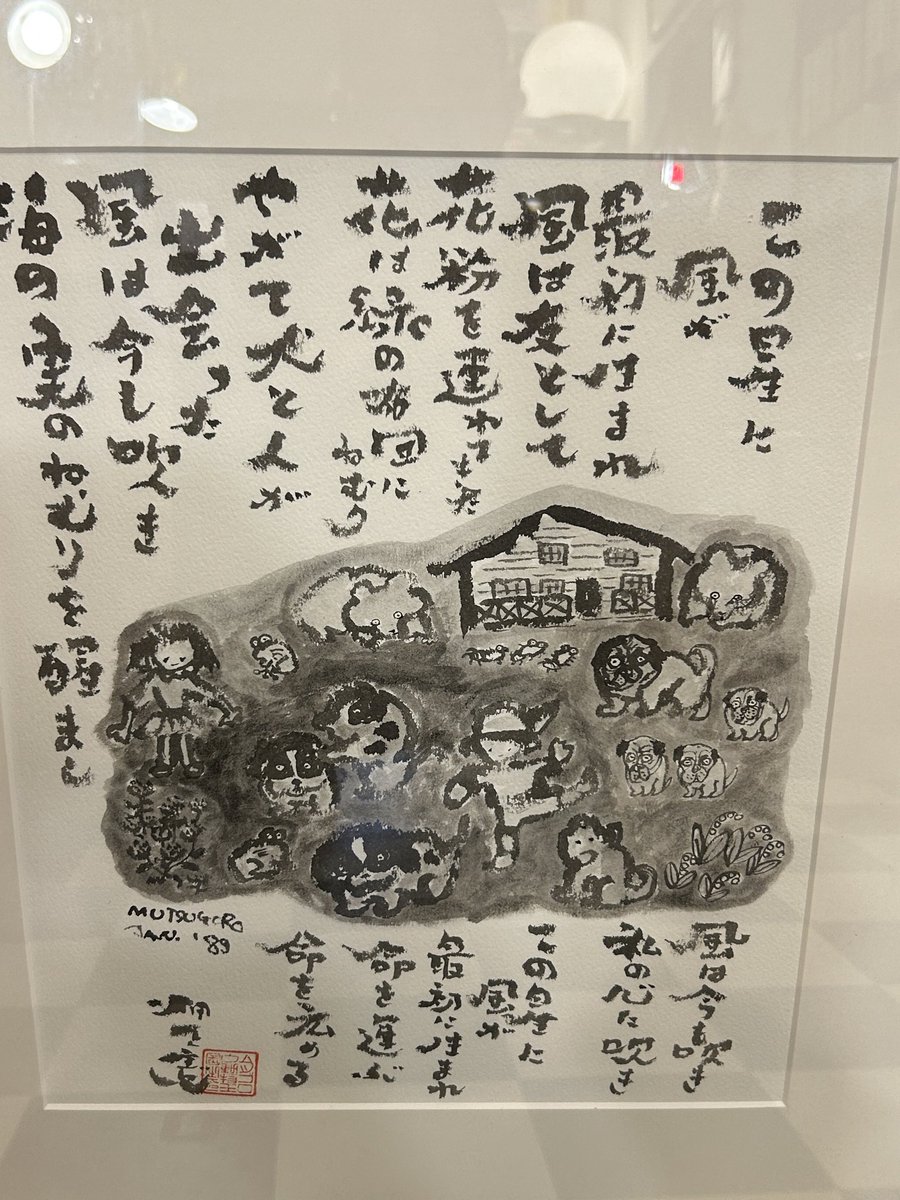 この星に
風が
最初に生まれ
風は友として
花粉を連れて来た
花は緑の布団に
ねむり
やがて犬と人が
出会った
風は今し吹き
海の実のねむりを醒まし
風は今も吹き
私の心に吹き
この星に
風が
最初に生まれ
命を運び
命を広める
MUTSUGORO
JAN. '89
畑正憲